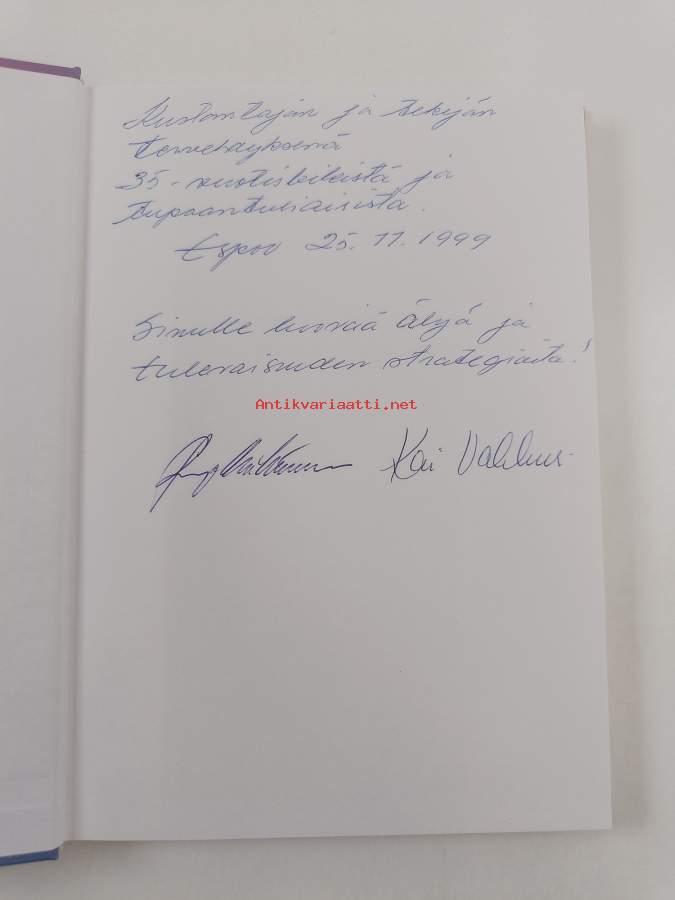 Kustantajan ja tekijän
tervehdyksenä
35-vuotisbileistä ja
tupaantuliaisista.
Espoo 25.11.1999
Sinulle luovaa älyä ja
tulevaisuuden strategioita!
Antikvariaatti.net
Kai